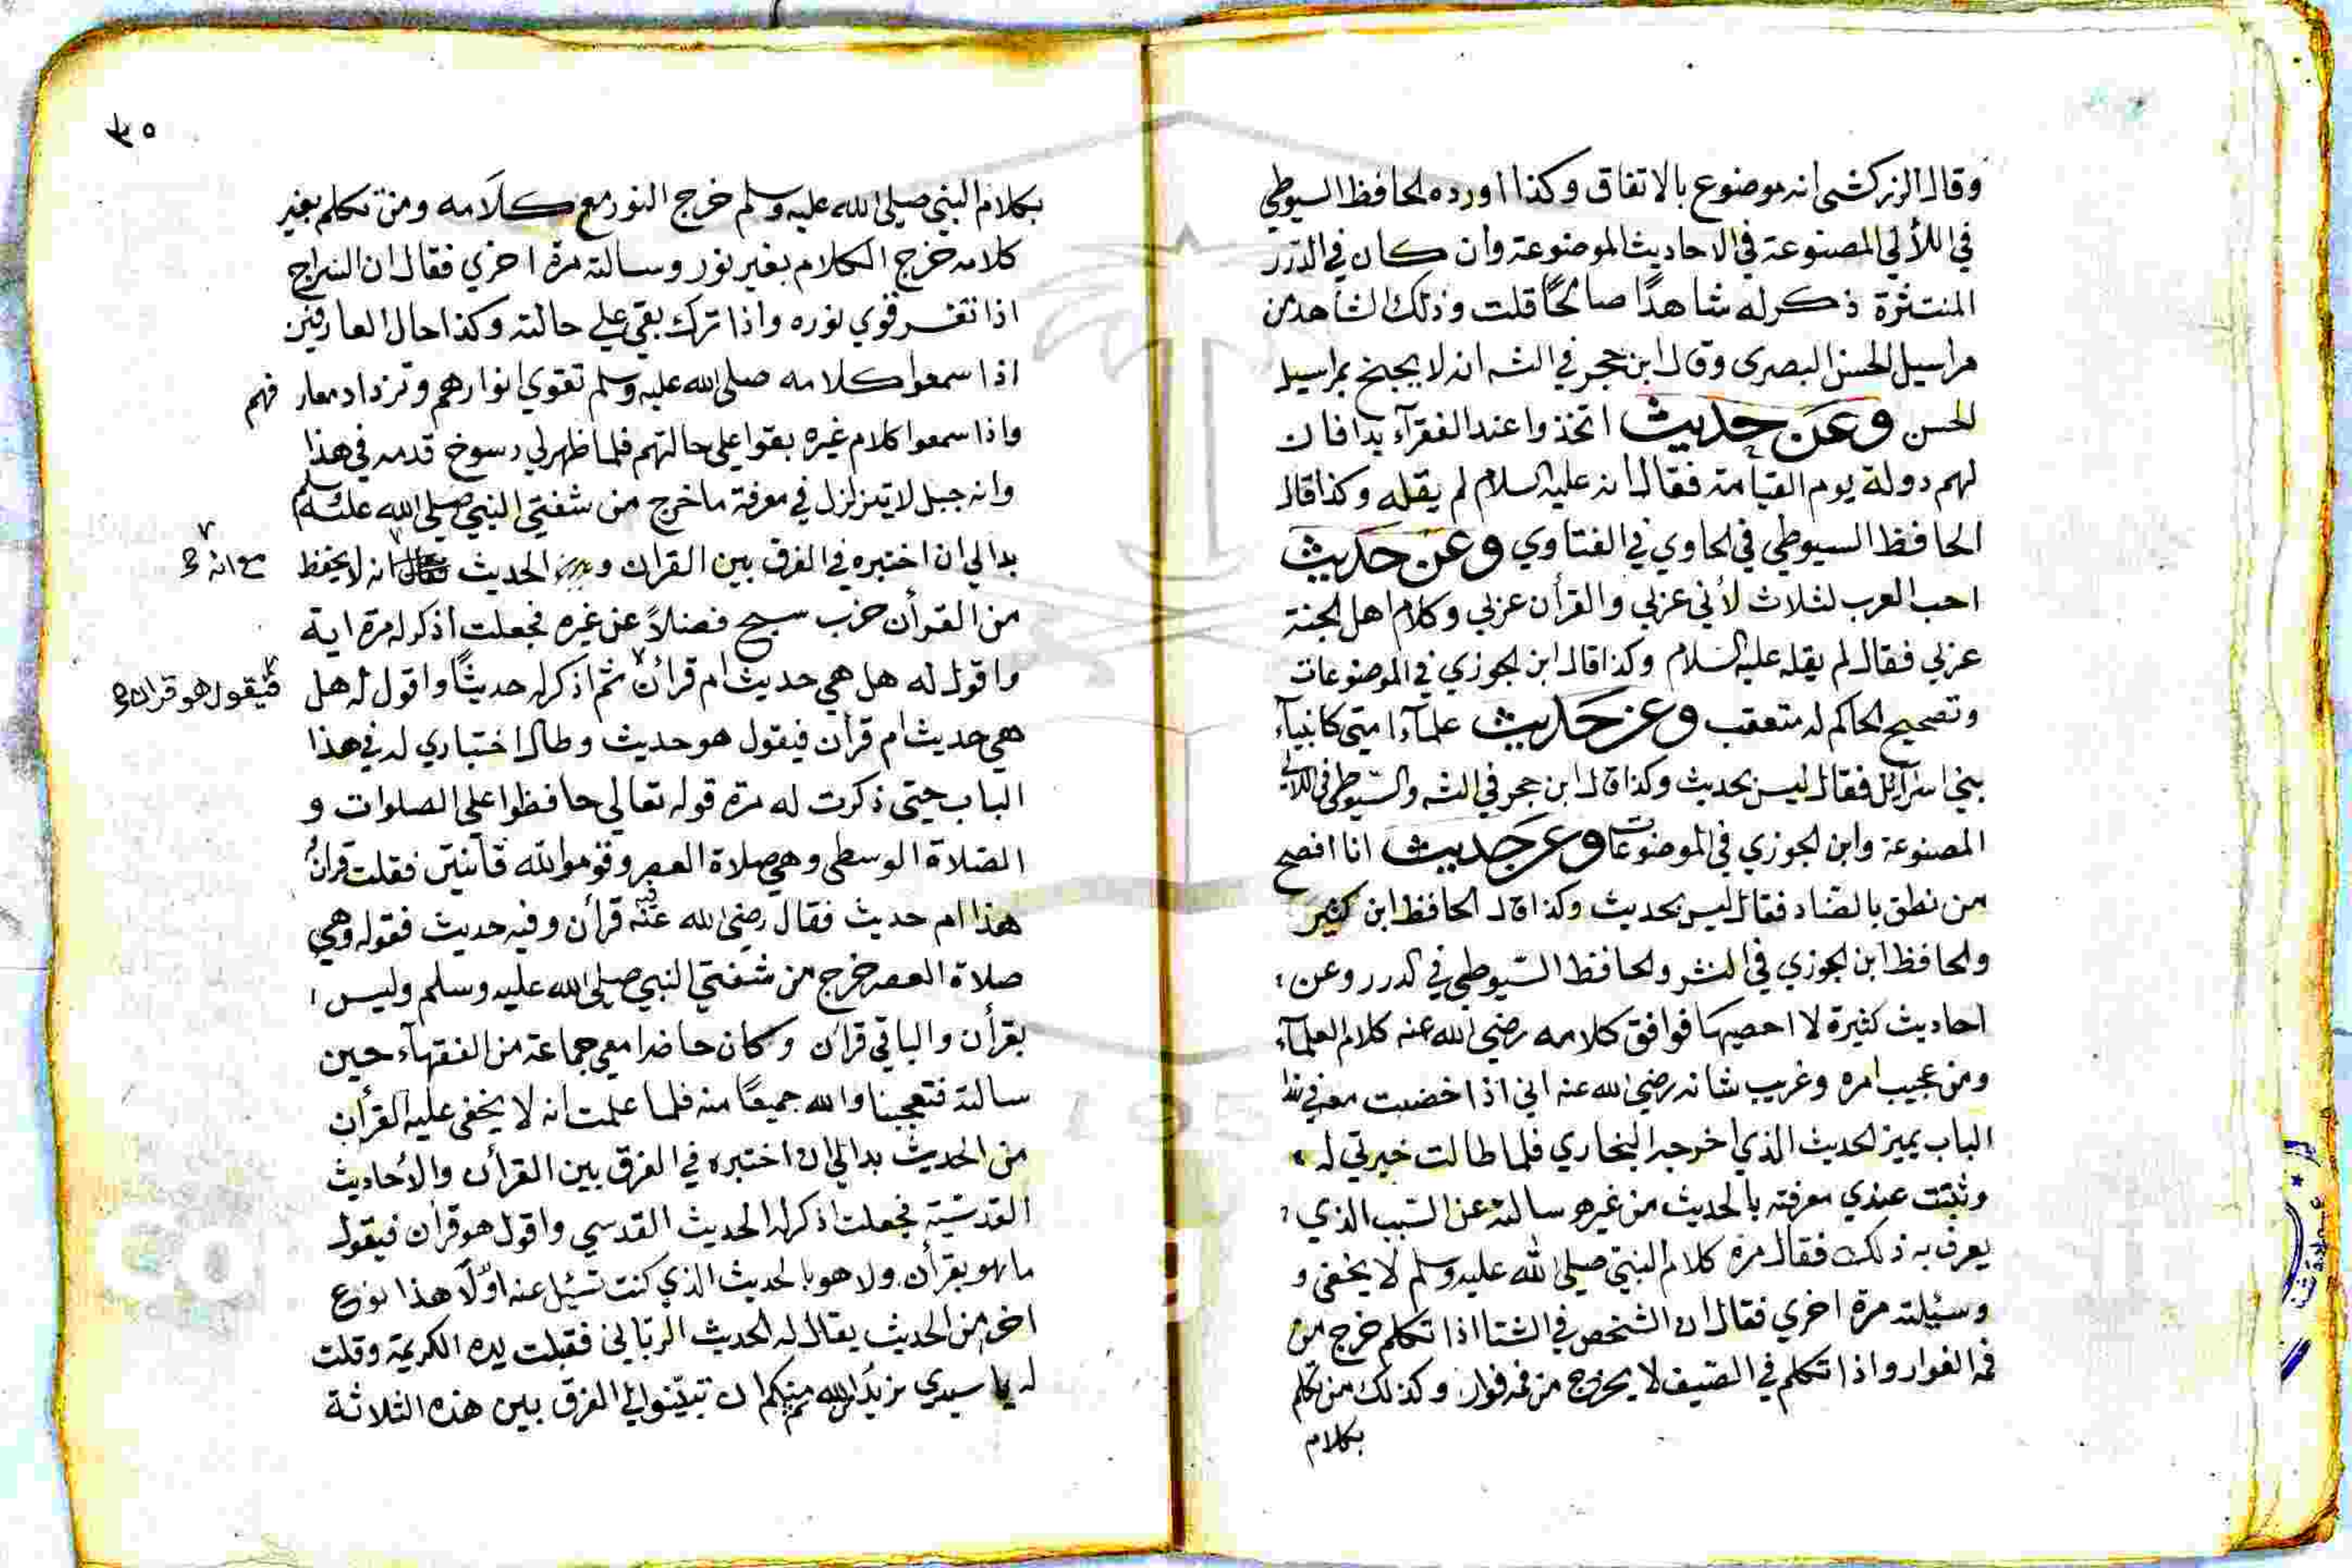 وقال الزركشي انه موضوع بالاتفاق وكذا اورده الحافظ السيوطي
في اللألي المصنوعة في الاحاديث الموضوعة وان كان في الدرر
المنتثرة ذكر له شاهدًا صالحًا قلت وذلك الشاهد من
مراسيل الحسن البصري وقال ابن حجر في الشه انه لا يحتج بمراسيل
الحسن وعن حديث اتخذوا عند الفقرآء يدا فان
لهم دولة يوم القيامة فقال انه عليه السلام لم يقله وكذا قال
الحافظ السيوطي في الحاوي في الفتاوي وعن حديث
احب العرب لثلاث لأني عربي والقرأن عربي وكلام اهل الجنة
عربي فقال لم يقله عليه السلام وكذا قال ابن الجوزي في الموضوعات
وتصحيح الحاكم له متعقب وعن حديث علمآء امتي كانبيآء
بني اسرآئل فقال ليس بحديث وكذا قال ابن حجر في الشه والسيوطي في اللالي
المصنوعة وابن الجوزي في الموضوعات وعن حديث انا افصح
من نطق بالضاد فقال ليس بحديث وكذا قال الحافظ ابن كثير
والحافظ ابن الجوزي في النشر والحافظ السيوطي في الدرر وعن
احاديث كثيرة لا احصيها فوافق كلامه رضي الله عنه كلام العلمآء
ومن عجيب امره وغريب شانه رضي الله عنه اني اذا خضت معه في هذا
الباب يميز الحديث الذي اخرجه البخاري فلما طالت خبرتي له
وثبتت عندي معرفته بالحديث من غيره سالته عن السبب الذي
يعرف به ذلك فقال مرة كلام النبي صلى الله عليه وسلم لا يخفى و
وسئلته مرة اخري فقال ان الشخص في الشتا اذا تكلم خرج من
فمه الفوار واذا تكلم في الصيف لا يخرج من فمه فوار وكذلك من تكلم
بكلام
٣٥
بكلام النبي صلى الله عليه وسلم خرج النور مع كلامه ومن تكلم بغير
كلامه خرج الكلام بغير نور وسالته مرة اخري فقال ان السراج
اذا تقرقوي نوره واذا ترك بقي علي حالته وكذا حال العارفين
اذا سمعوا كلامه صلى الله عليه وسلم تقوي انوارهم وتزداد معارفهم
واذا سمعوا كلام غيره بقوا على حالتهم فلما ظهر لي رسوخ قدمه في هذا
وانه جبل لا يتزلزل في معرفة ما خرج من شفتي النبي صلى الله عليه وسلم
بدا لي ان اختبره في الفرق بين القران و الحديث انه لا يحفظ
مع انه
من القرأن حزب سبح فضلاً عن غيره فجعلت اذكر له مرة اية
واقول له هل هي حديث ام قرأن ثم اذكر له حديثًا واقول له هل
فيقول هو قران
هي حديث ام قرأن فيقول هو حديث وطال اختباري له في هذا
الباب حتى ذكرت له مرة قوله تعالي حافظوا علي الصلوات و
الصلاة الوسطى وهي صلاة العصر وقوموا لله قانتين فقلت قران
هذا ام حديث فقال رضي الله عنه فيه قرأن وفيه حديث فقوله وهي
صلاة العصر خرج من شفتي النبي صلى الله عليه وسلم وليس
بقرأن والباقي قرأن وكان حاضرا معي جماعة من الفقهآء حين
سالته فتعجبنا والله جميعًا منه فلما علمت انه لا يخفى عليه القرأن
من الحديث بدا لي ان اختبره في الفرق بين القرأن والأحاديث
القدسية فجعلت اذكر له الحديث القدسي واقول هو قران فيقول
ما هو بقرأن ولا هو بالحديث الذي كنت تسئل عنه اوّلًا هذا نوع
اخر من الحديث يقال له الحديث الرباني فقبلت يده الكريمة وقلت
له يا سيدي نريد من الله ثم منكم ان تبينوا لي الفرق بين هذه الثلاثة